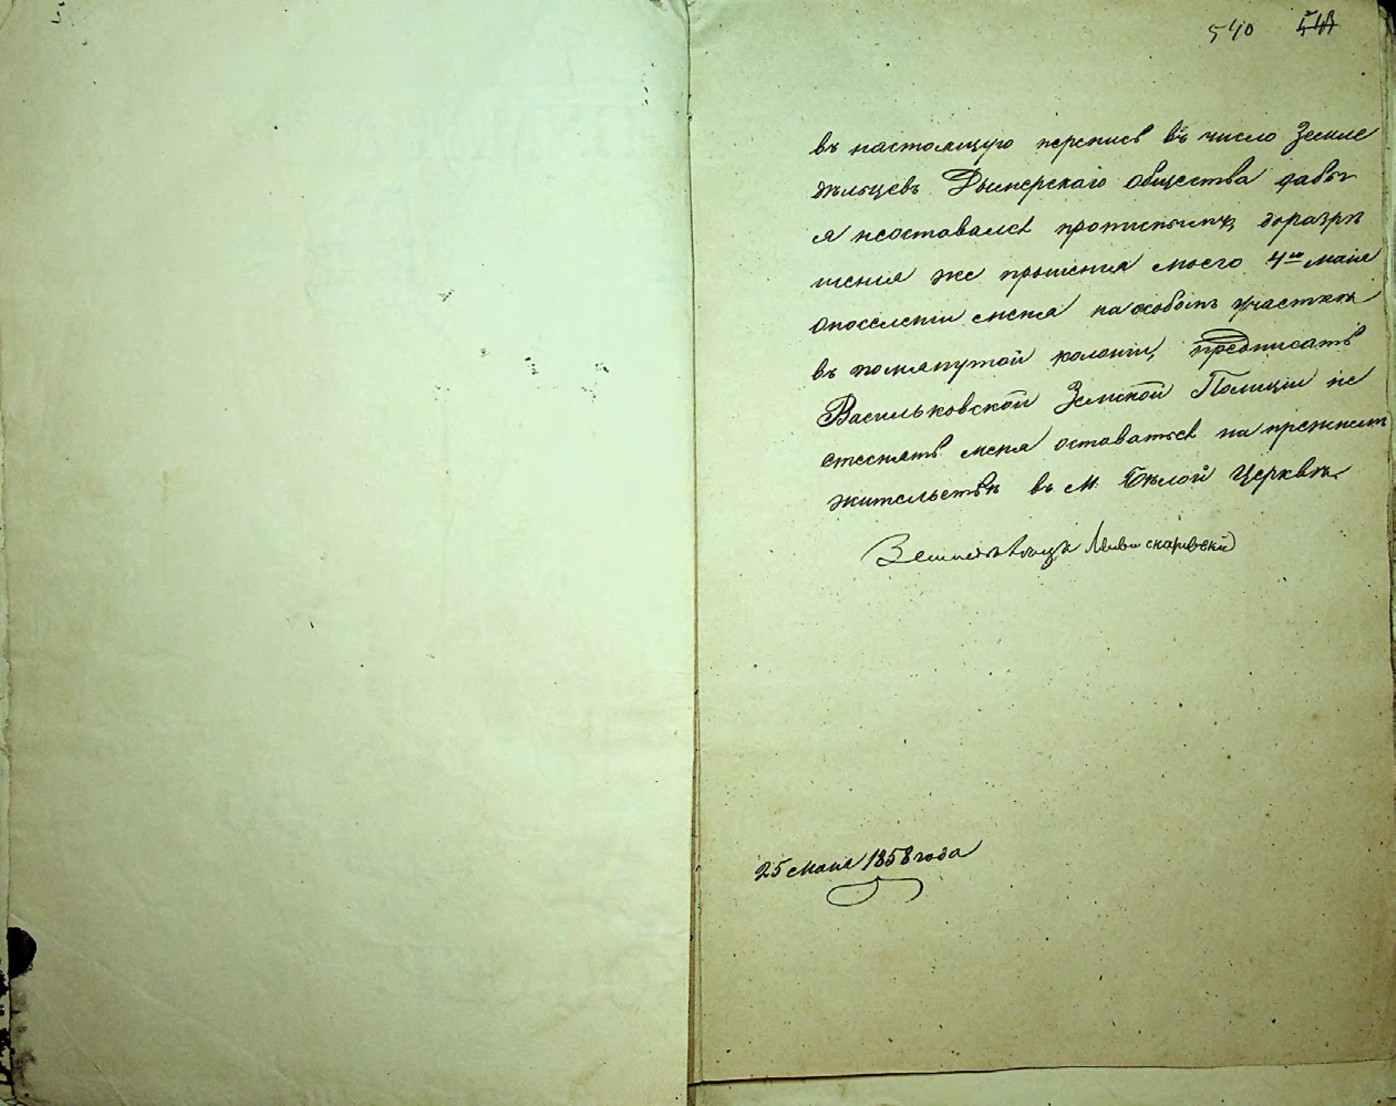 540
въ настоящую перепись въ число Земле
дѣльцевъ Дымерскаго Общества дабы
я неоставался пропискою доразрѣ
шенія же прошенія моего 4го маія
опоселеніи меня на особомъ участкѣ
въ помянутой колоніи, предписать
Васильковской Земской Полиціи не
стеснять меня оставаться на прежнемъ
жительствѣ въ М. Бѣлой Церквѣ.
Земледѣлецъ
25 мая 1858 года